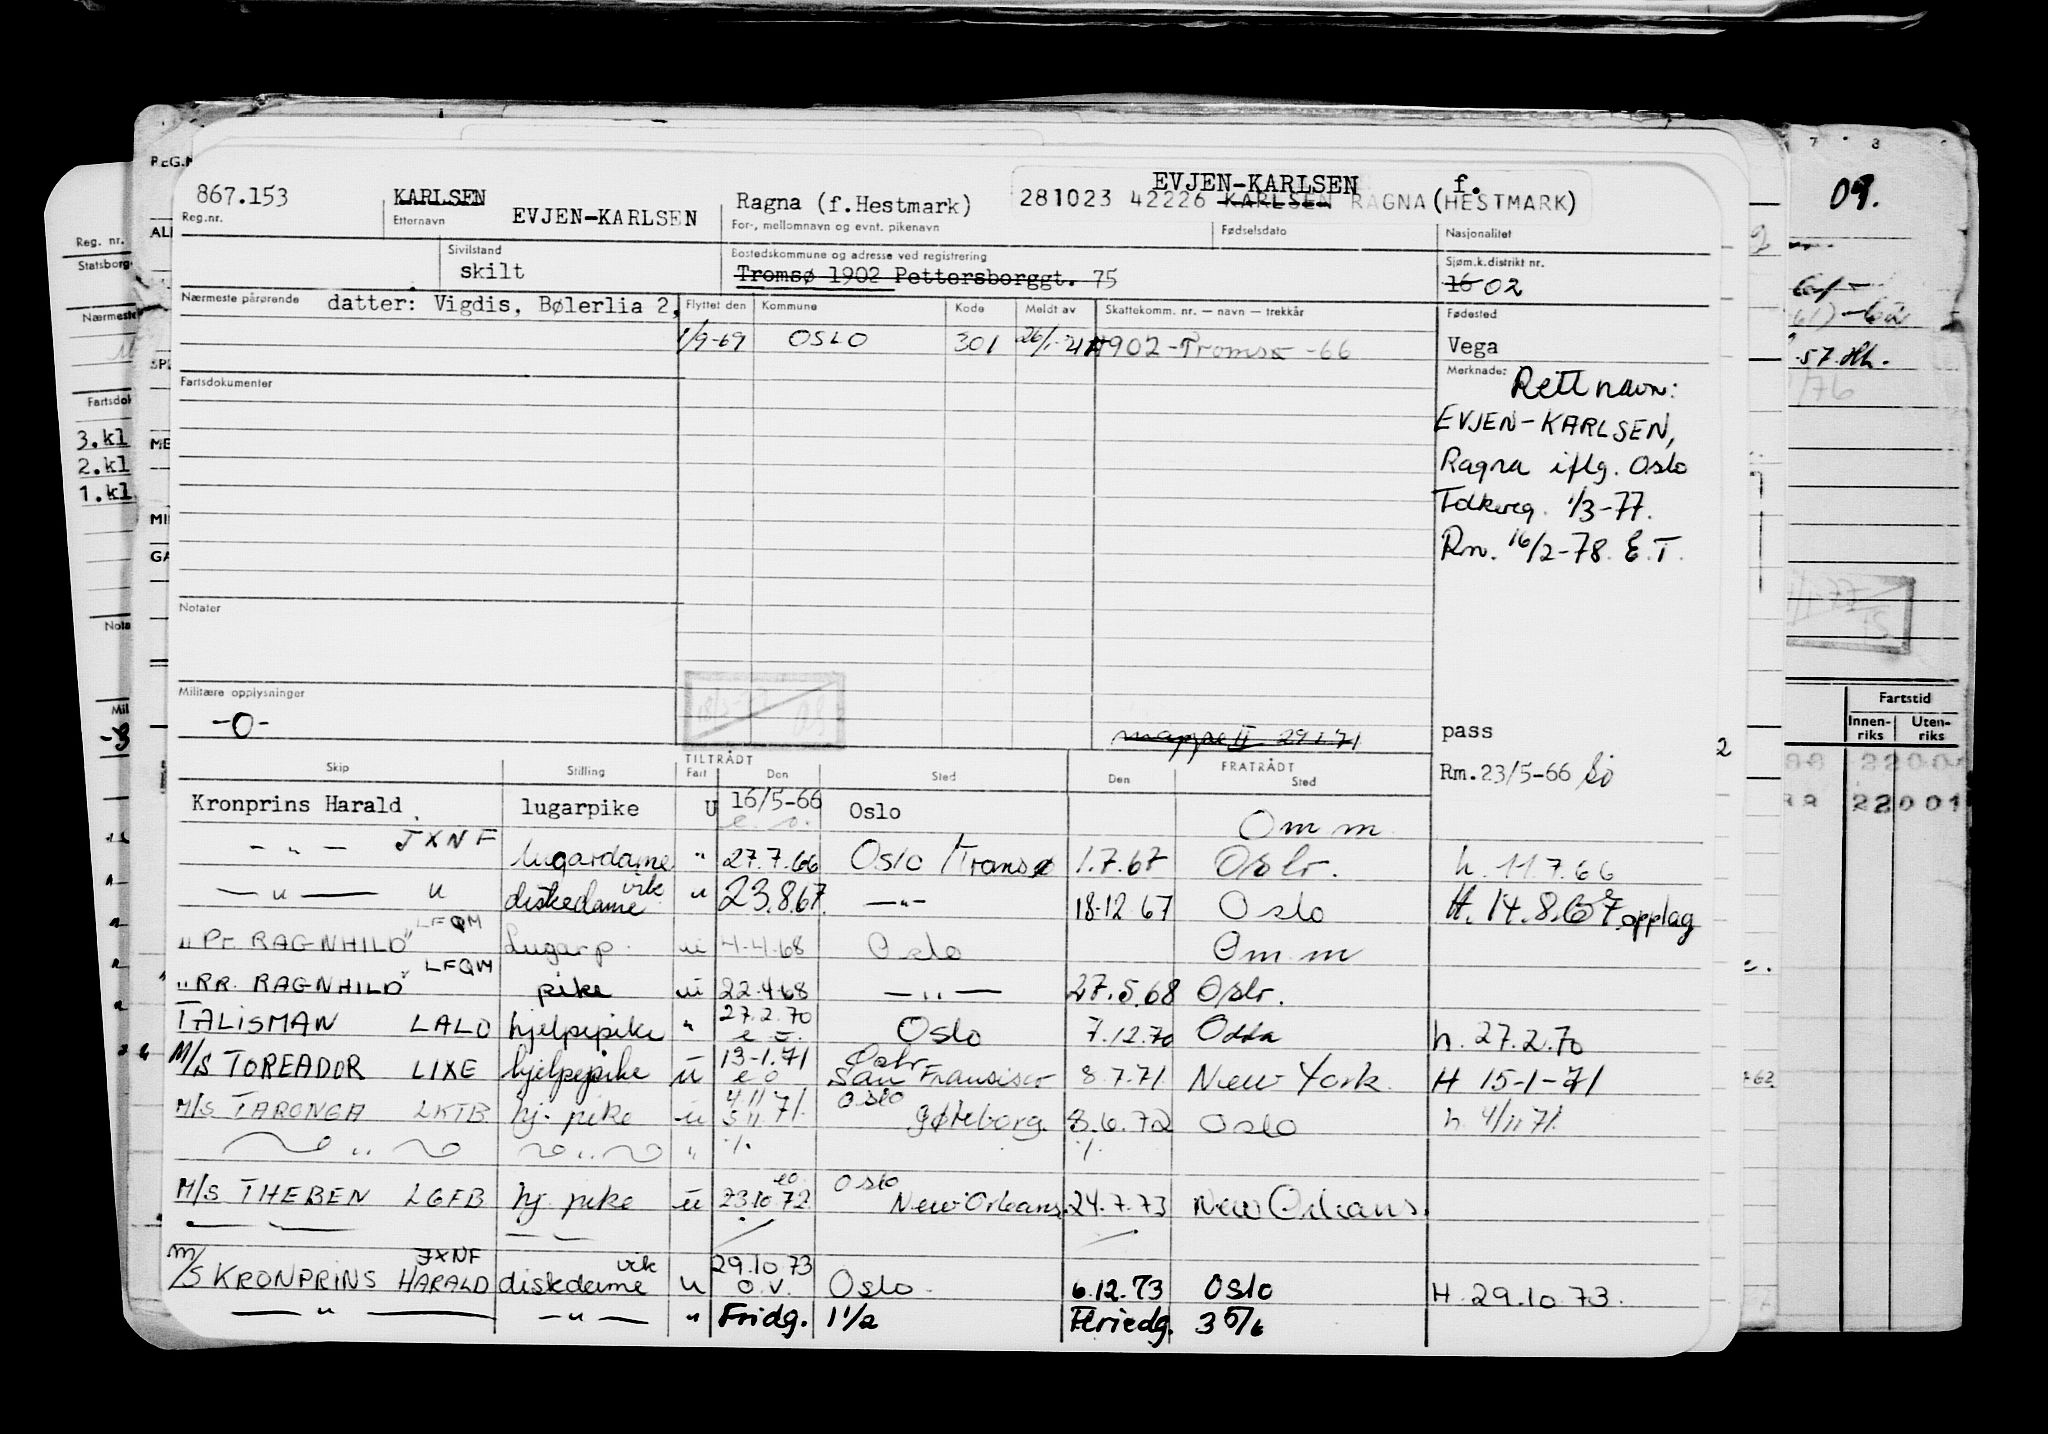 EVJEN-KARLSEN f.
867.153 KARLSEN Ragna (f.Hestmark) 281023 42226 KARLSEN RAGNA (HESTMARK)
Reg.nr. Etternavn EVJEN-KARLSEN For-, mellomnavn og evnt. pikenavn Fødselsdato Nasjonalitet
Sivilstand Bostedskommune og adresse ved registrering Sjøm.k.distrikt nr.
skilt Tromsø 1902 Pettersborggt. 75 16 02
Nærmeste pårørende datter: Vigdis, Bølerlia 2, Flyttet den Kommune Kode Meldt av Skattekomm. nr. — navn — trekkår Fødested
1/9-69 OSLO 301 1902 - Tromsø -66 Vega
Fartsdokumenter Merknader
Rett navn:
EVJEN-KARLSEN,
Ragna iflg. Oslo
Folkereg. 1/3-77.
Rm. 16/2-78. E.T.
Notater
Militære opplysninger
-0-
mappe II 29.1.71 pass
Rm.23/5-66
TILTRÅDT FRATRÅDT
Skip Stilling Fart Den Sted Den Sted
Kronprins Harald lugarpike U 16/5-66 Oslo Omm
- " - JXNF lugardame " 27.7.66 Oslo/Tromsø 1.7.67 Oslo. h. 11.7.66
— " — " diskedame vik " 23.8.67. — " — 18.12.67 Oslo H. 14.8.67 opplag
"Pr. RAGNHILD" LFQM Lugarp. u 4.4.68 Oslo Omm
"PR. RAGNHILD" LFQM pike u 22.4.68 — " — 27.5.68 Oslo.
TALISMAN LALO hjelpepike " 27.2.70 Oslo 7.12.70 Odda h. 27.2.70
M/S TOREADOR LIXE hjelpepike u 13-1.71 e o Oslo San Fransisco 8.7.71 New York H 15-1-71
M/S TARONGA LKTB hj. pike u 4.11.71 5.11. Oslo Gøteborg. 8.6.72 Oslo h. 4/11 71.
" " " ·/. ·/.
M/S THEBEN LGFB hj. pike u 23.10.72 eo Oslo New Orleans 24.7.73 New Orleans.
m/S KRONPRINS HARALD JXNF diskdame vik u 29.10.73 o.v. Oslo. 6.12.73 Oslo H. 29.10.73.
— " — — " — " Fridg. 1 1/2 Feriedg. 3 5/6
REG.N
Reg. nr.
Statsborg
Nærmeste
Fartsdok
3.kl
2.kl
1.kl
Nota
Mil
09.
Fartstid
Innenriks Utenriks
22001